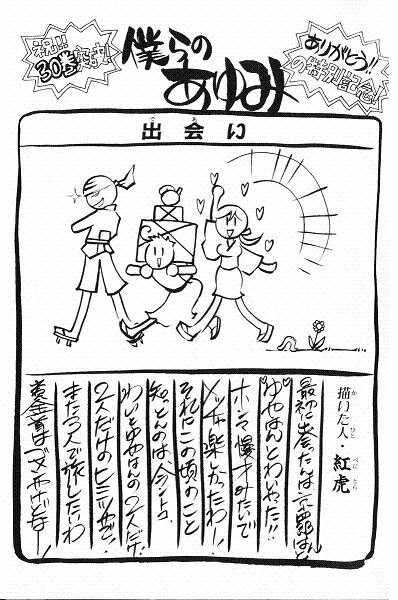 祝!!
30巻突破!
僕らの
あゆみ
ありがとう!!
の特別記念
出会い
描いた人・紅虎
最初に会ったんは京四郎はんと
ゆやはんとわいやった!!
ホンマ漫才みたいで
メッチャ楽しかったわー!
それにこの頃のこと
知っとんのは今ントコ、
わいとゆやはんの2人だけ!
2人だけのヒミツやでー!
また3人で旅したいわ
黄金首はゴメンやけどなー!